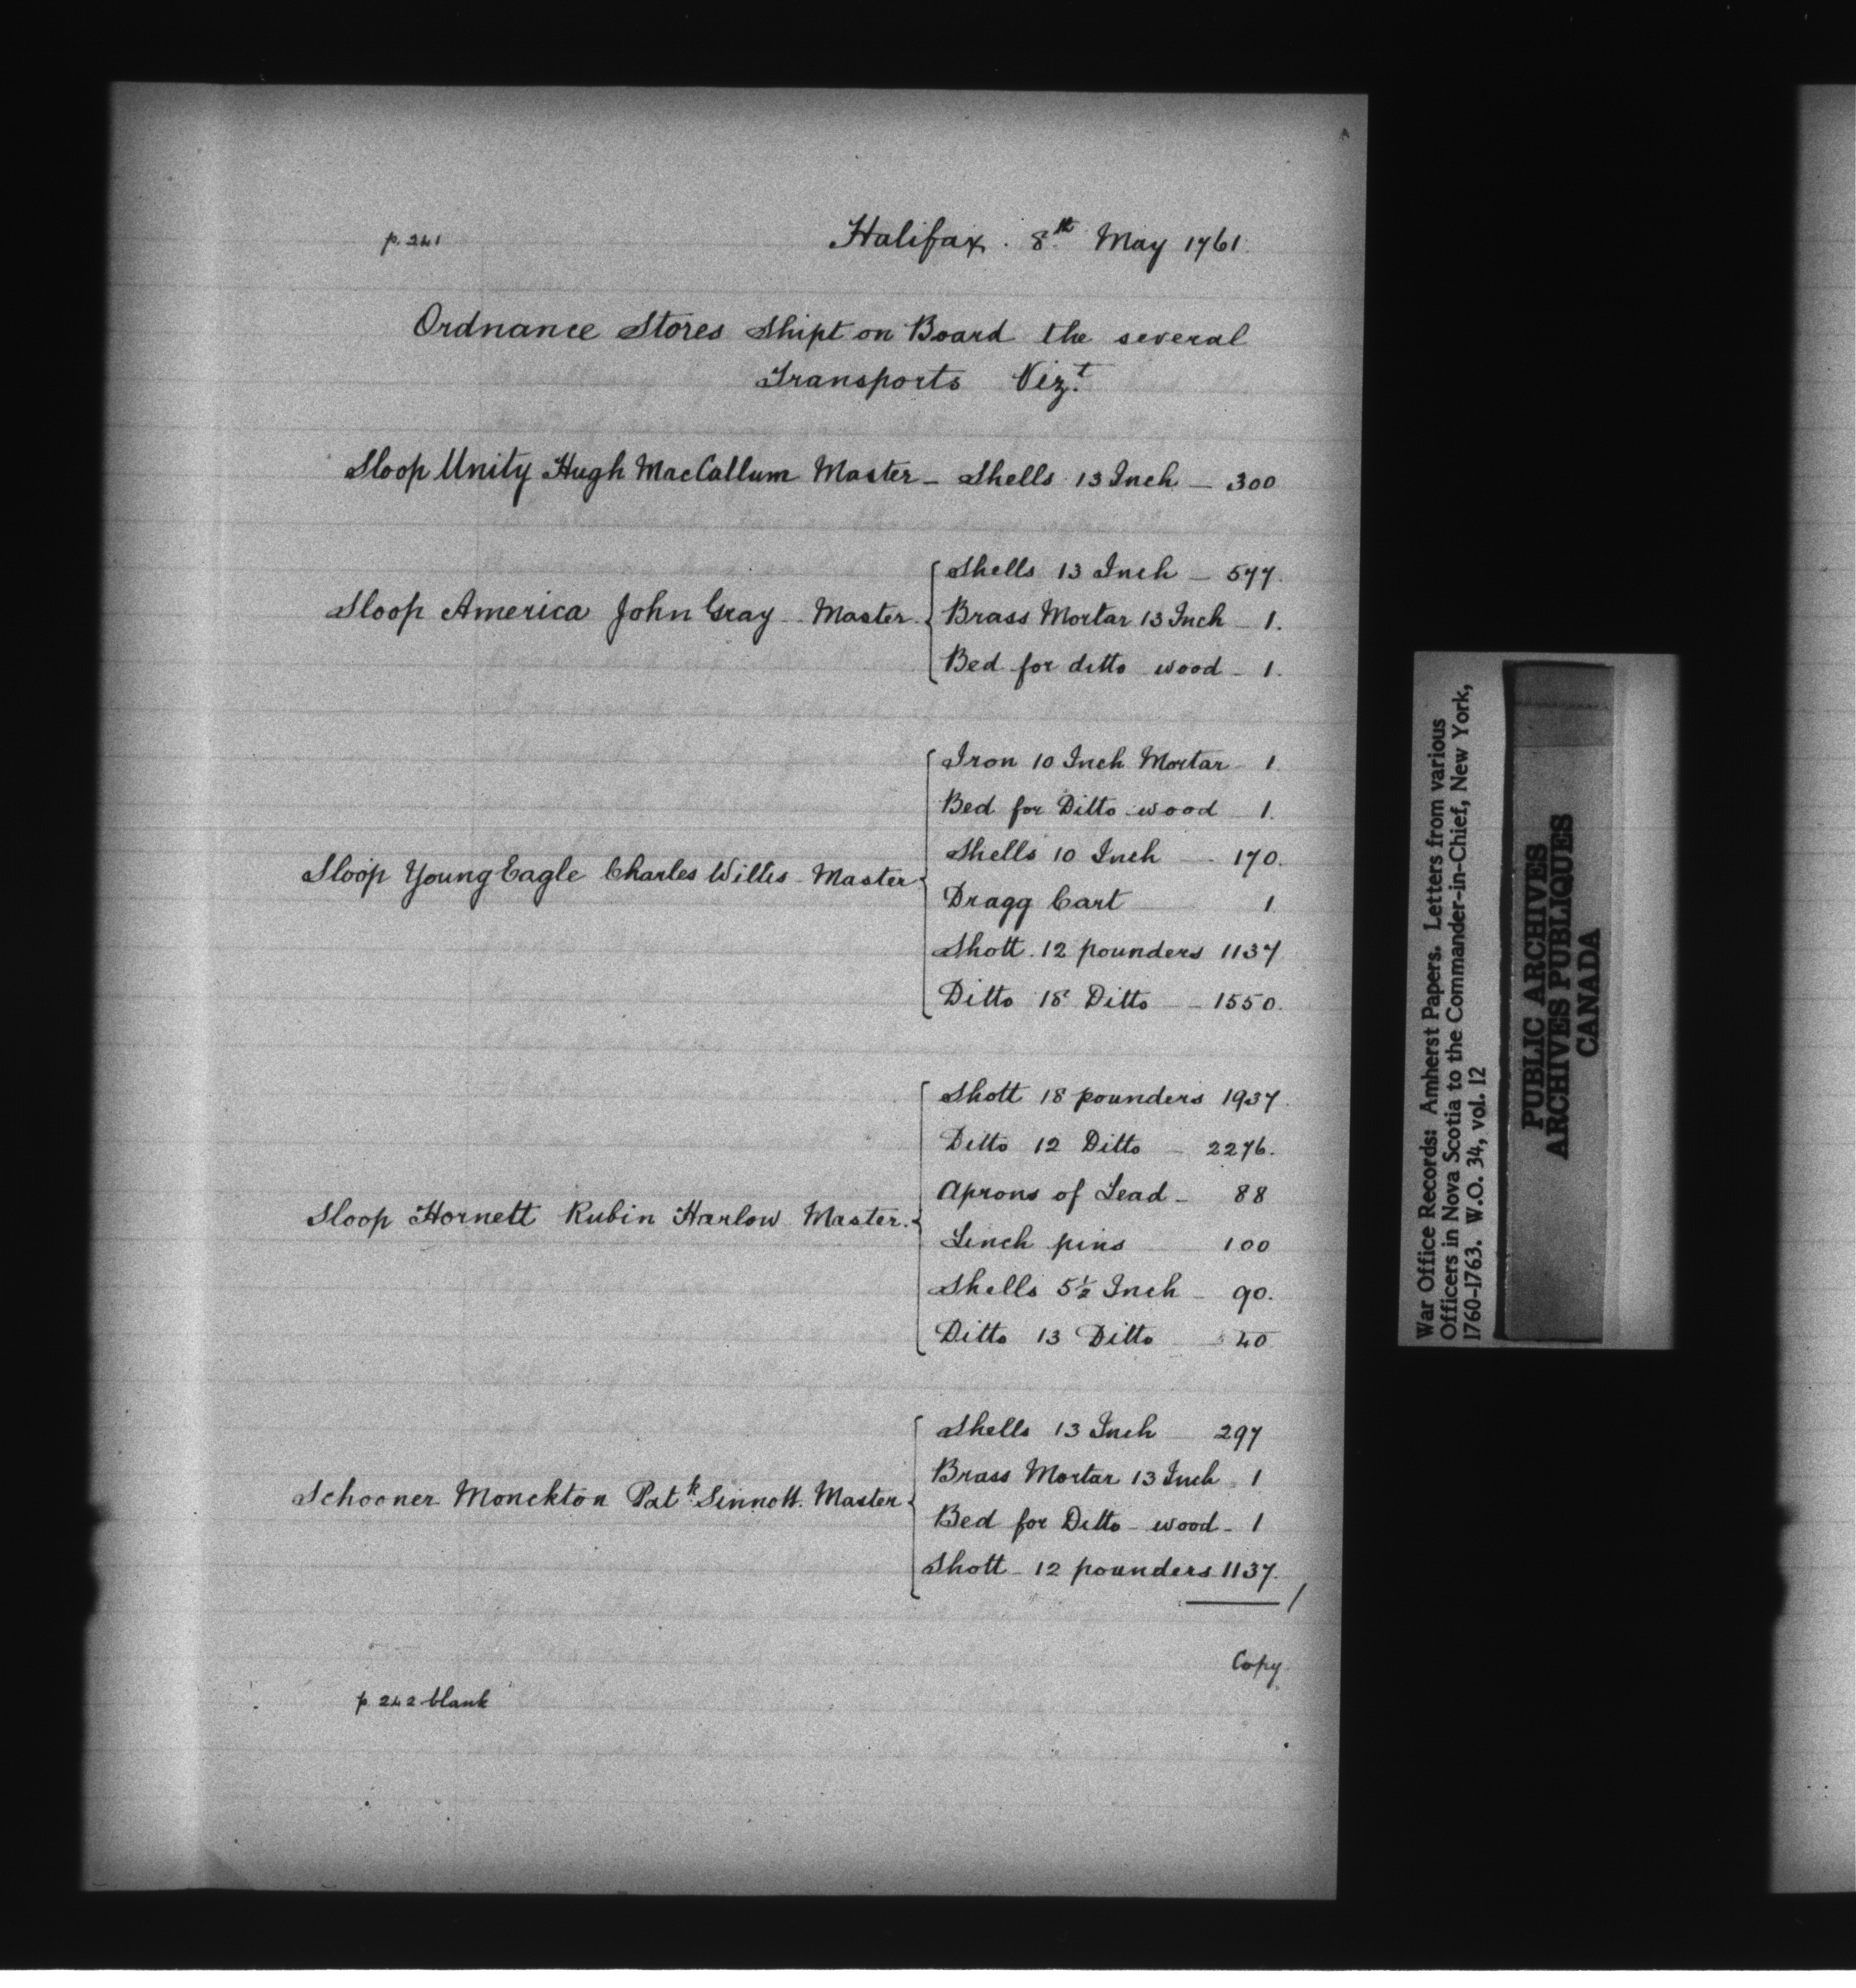 p. 241
Halifax. 8th May 1761.
Ordnance Stores Shipt on Board the several
Transports Vizt
Sloop Unity Hugh MacCallum Master - Shells 13 Inch - 300
Sloop America John Gray - Master.
Shells 13 Inch - 577.
Brass Mortar 13 Inch - 1.
Bed for ditto wood - 1.
Sloop Young Eagle Charles Willis - Master
Iron 10 Inch Mortar - 1
Bed for Ditto wood 1.
Shells 10 Inch - 170.
Dragg Cart 1
Shott. 12 pounders 1137
Ditto 18 Ditto - 1550.
Sloop Hornett Rubin Harlow Master.
Shott 18 pounders 1937.
Ditto 12 Ditto - 2276.
Aprons of Lead - 88
Linch pins 100
Shells 5½ Inch - 90.
Ditto 13 Ditto 40
Schooner Monckton Patk Sinnott. Master
Shells 13 Inch 297
Brass Mortar 13 Inch - 1
Bed for Ditto - wood - 1
Shott - 12 pounders 1137.
Copy.
p 242 blank
War Office Records: Amherst Papers. Letters from various
Officers in Nova Scotia to the Commander-in-Chief, New York,
1760-1763. W.O. 34, vol. 12
PUBLIC ARCHIVES
ARCHIVES PUBLIQUES
CANADA